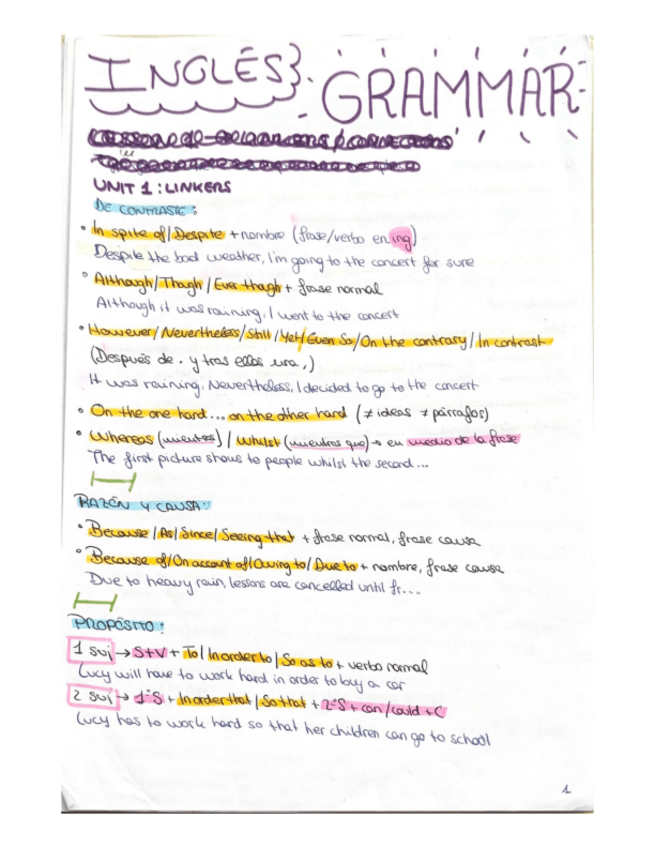 INGLÉS}. GRAMMAR
UNIT 1: LINKERS
DE CONTRASTE:
• In spite of/Despite + nombre (frase/verbo en ing)
Despite the bad weather, I'm going to the concert for sure
• Although/Though/Even though + frase normal
Although it was raining, I went to the concert
• However/Nevertheless/Still/Yet/Even So/On the contrary/In contrast
(Después de . y tras ellos una ,)
It was raining. Nevertheless, I decided to go to the concert
• On the one hand... on the other hand (≠ ideas ≠ párrafos)
• Whereas (mientras) / Whilst (mientras que) → en medio de la frase
The first picture shows to people whilst the second...
RAZÓN Y CAUSA:
• Because/As/Since/Seeing that + frase normal, frase causa
• Because of/On account of/Owing to/Due to + nombre, frase causa
Due to heavy rain, lessons are cancelled until fr...
PROPÓSITO:
1 suj → S+V + To/In order to/So as to + verbo normal
Lucy will have to work hard in order to buy a car
2 suj → 1ºS + In order that/So that + 2ºS + can/could + C
Lucy has to work hard so that her children can go to school
1